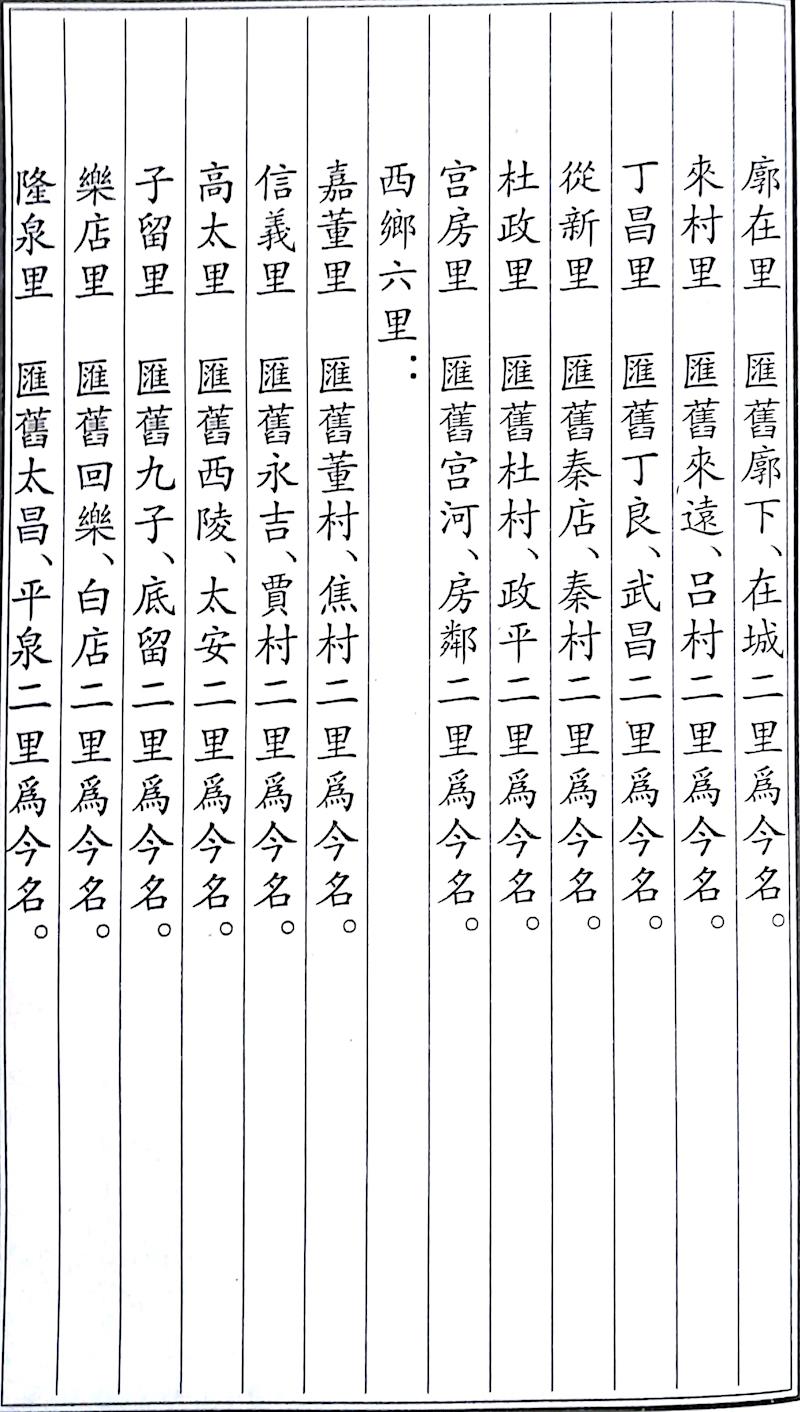 廓在里　匯舊廓下、在城二里爲今名。
來村里　匯舊來遠、呂村二里爲今名。
丁昌里　匯舊丁良、武昌二里爲今名。
從新里　匯舊秦店、秦村二里爲今名。
杜政里　匯舊杜村、政平二里爲今名。
宫房里　匯舊宫河、房鄰二里爲今名。
西鄉六里：
嘉董里　匯舊董村、焦村二里爲今名。
信義里　匯舊永吉、賈村二里爲今名。
高太里　匯舊西陵、太安二里爲今名。
子留里　匯舊九子、底留二里爲今名。
樂店里　匯舊回樂、白店二里爲今名。
隆泉里　匯舊太昌、平泉二里爲今名。